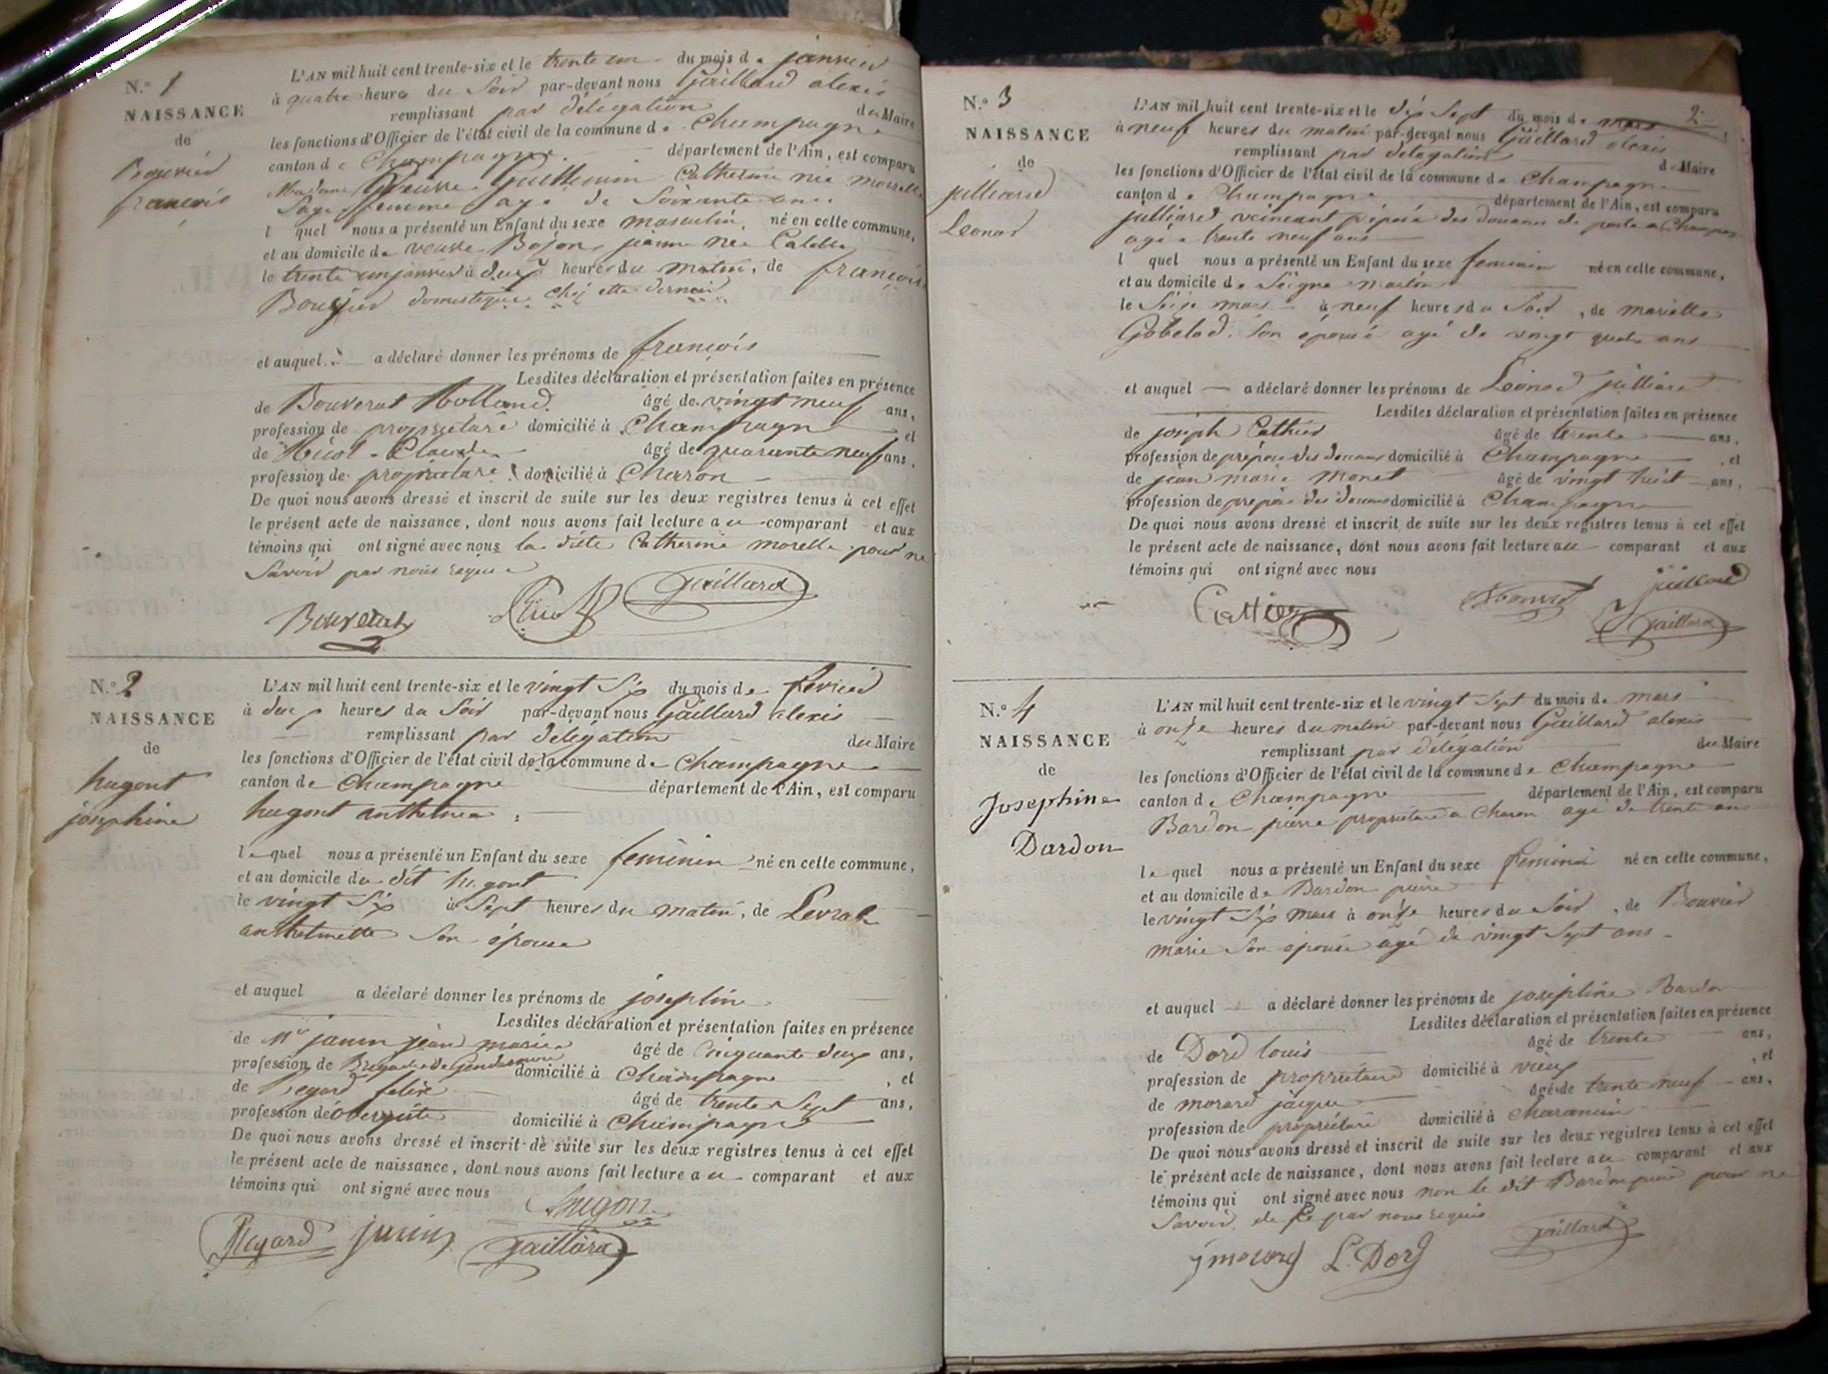 N.° 1
NAISSANCE
de
Bouvier
françois
L'AN mil huit cent trente-six et le trente un du mois de janvier
à quatre heures du Soir par-devant nous Gaillard alexis
remplissant par délégation du Maire
les fonctions d'Officier de l'état civil de la commune de Champagne
canton de Champagne département de l'Ain, est comparu
Madame Veuve Guillemin Catherine née morelle
Sage femme age de Soixante ans
l quel nous a présenté un Enfant du sexe masculin, né en cette commune,
et au domicile de veuve Bojon jeanne née
le trente un janvier à deux heures du matin, de françoise
Bouvier domestique chez cette dernier
et auquel a déclaré donner les prénoms de françois
Lesdites déclaration et présentation faites en présence
de Bouverat Rolland âgé de vingt neuf ans,
profession de propriétaire domicilié à Champagne et
de Hicot Claude âgé de quarante neuf ans,
profession de propriétaire domicilié à Charon
De quoi nous avons dressé et inscrit de suite sur les deux registres tenus à cet effet
le présent acte de naissance, dont nous avons fait lecture au comparant et aux
témoins qui ont signé avec nous la ditte Catherine morelle pour ne
Savoir par nous requise
Bouverat Gaillard
N.° 2
NAISSANCE
de
hugont
josephine
L'AN mil huit cent trente-six et le vingt Six du mois de fevrier
à deux heures du Soir par-devant nous Gaillard alexis
remplissant par délégation du Maire
les fonctions d'Officier de l'état civil de la commune de Champagne
canton de Champagne département de l'Ain, est comparu
hugont anthelme
le quel nous a présenté un Enfant du sexe feminin né en cette commune,
et au domicile du dit hugont
le vingt Six à Sept heures du matin, de Levrat
anthelmette Son épouse
et auquel a déclaré donner les prénoms de josephine
Lesdites déclaration et présentation faites en présence
de Mr janin jean marie âgé de Cinquante deux ans,
profession de Brigadier de Gendarmerie domicilié à Champagne, et
de Regard felix âgé de trente Sept ans,
profession de obergiste domicilié à Champagne
De quoi nous avons dressé et inscrit de suite sur les deux registres tenus à cet effet
le présent acte de naissance, dont nous avons fait lecture au comparant et aux
témoins qui ont signé avec nous
hugon
Regard janin Gaillard
2
N.° 3
NAISSANCE
de
julliard
Leonard
L'AN mil huit cent trente-six et le dix Sept du mois de mars
à neuf heures du matin par-devant nous Gaillard alexis
remplissant par délégation de Maire
les fonctions d'Officier de l'état civil de la commune de Champagne
canton de Champagne département de l'Ain, est comparu
julliard préposé des douanes de poste a Champagne
agé trente neuf ans
l quel nous a présenté un Enfant du sexe feminin né en cette commune,
et au domicile de Seigne martin
le Seize mars à neuf heures du Soir, de mariette
Gobelad Son épouse agé de vingt quatre ans
et auquel a déclaré donner les prénoms de Léonard julliard
Lesdites déclaration et présentation faites en présence
de joseph Cathier âgé de trente ans,
profession de préposé des douanes domicilié à Champagne, et
de jean marie monet âgé de vingt huit ans,
profession de préposé des douanes domicilié à Champagne
De quoi nous avons dressé et inscrit de suite sur les deux registres tenus à cet effet
le présent acte de naissance, dont nous avons fait lecture au comparant et aux
témoins qui ont signé avec nous
julliard
Cattier Gaillard
N.° 4
NAISSANCE
de
Josephine
Dardon
L'AN mil huit cent trente-six et le vingt Sept du mois de mars
à onze heures du matin par-devant nous Gaillard alexis
remplissant par délégation du Maire
les fonctions d'Officier de l'état civil de la commune de Champagne
canton de Champagne département de l'Ain, est comparu
Bardon pierre propriétaire a Charon agé de trente ans
le quel nous a présenté un Enfant du sexe féminin né en cette commune,
et au domicile de Bardon pierre
le vingt Six mars à onze heures du Soir, de Bouvier
marie Son épouse agé de vingt Sept ans
et auquel a déclaré donner les prénoms de josephine Bardon
Lesdites déclaration et présentation faites en présence
de Dord louis âgé de trente ans,
profession de propriétaire domicilié à vieux, et
de morard jacque âgé de trente neuf ans,
profession de propriétaire domicilié à charancin
De quoi nous avons dressé et inscrit de suite sur les deux registres tenus à cet effet
le présent acte de naissance, dont nous avons fait lecture au comparant et aux
témoins qui ont signé avec nous non le dit Bardon pierre pour ne
Savoir de ce par nous requis
Gaillard
j morard L. Dord